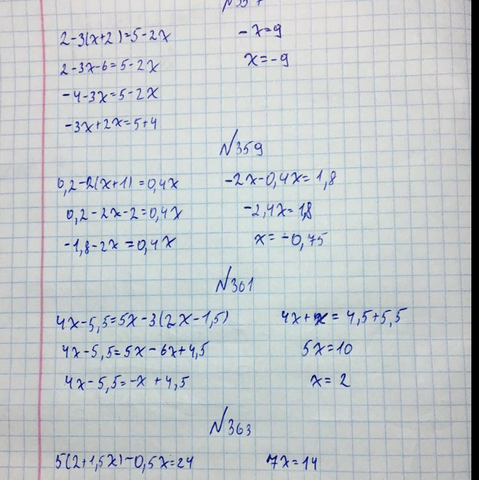 2-3(x+2)=5-2x
2-3x-6=5-2x
-4-3x=5-2x
-3x+2x=5+4
-x=9
x=-9
N359
0,2-2(x+1)=0,4x
0,2-2x-2=0,4x
-1,8-2x=0,4x
-2x-0,4x=1,8
-2,4x=1,8
x=-0,75
N361
4x-5,5=5x-3(2x-1,5)
4x-5,5=5x-6x+4,5
4x-5,5=-x+4,5
4x+x=4,5+5,5
5x=10
x=2
N363
5(2+1,5x)-0,5x=24
7x=14